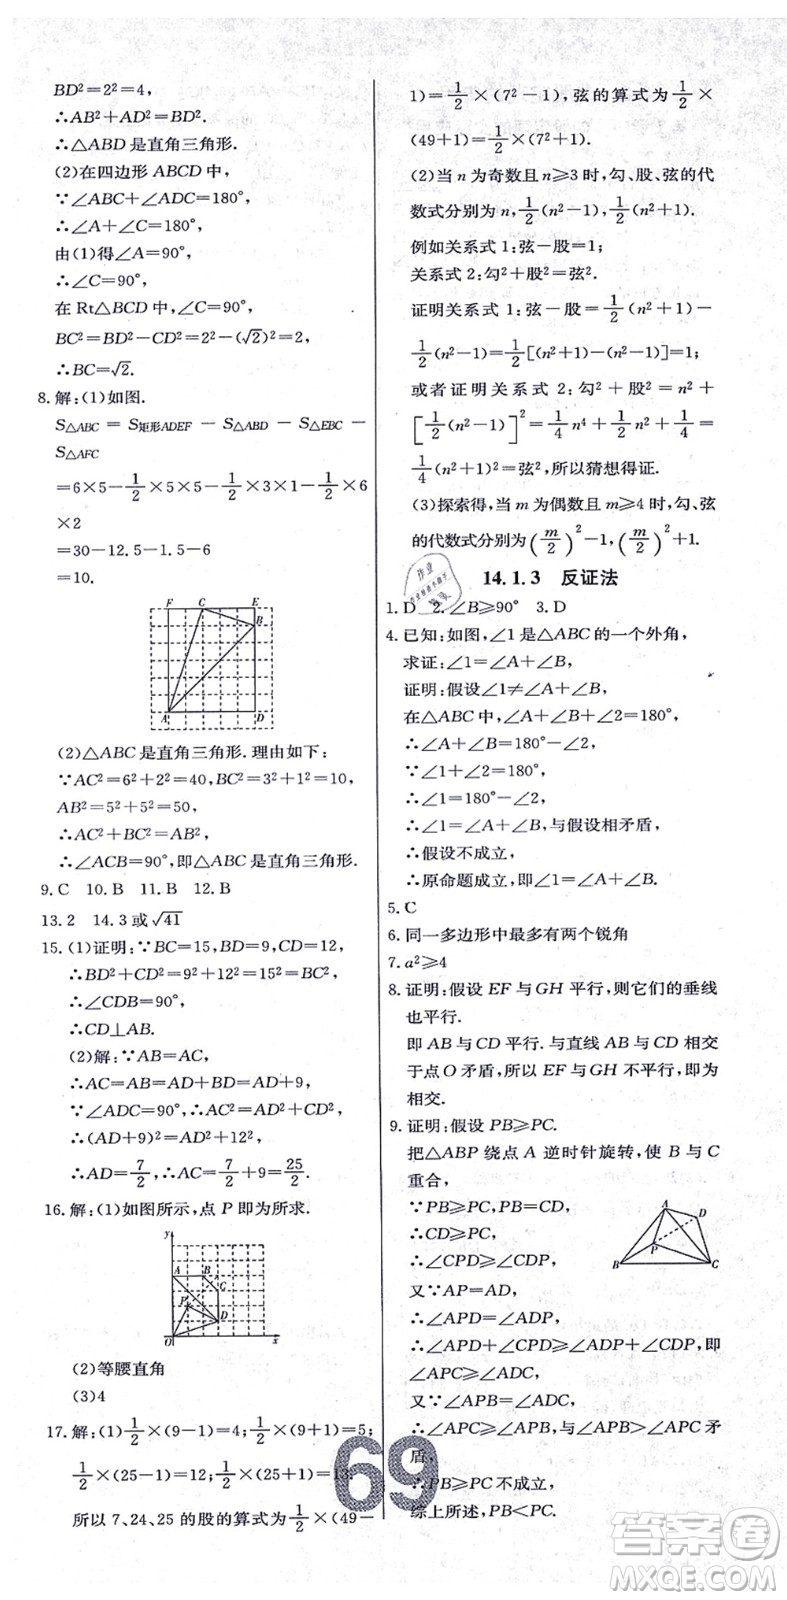 BD²=2²=4,
∴AB²+AD²=BD².
∴△ABD是直角三角形.
(2)在四边形ABCD中,
∵∠ABC+∠ADC=180°,
∴∠A+∠C=180°,
由(1)得∠A=90°,
∴∠C=90°,
在Rt△BCD中,∠C=90°,
BC²=BD²-CD²=2²-(√2)²=2,
∴BC=√2.
8.解:(1)如图.
S△ABC = S矩形ADEF - S△ABD - S△EBC -
S△AFC
=6×5-1/2×5×5-1/2×3×1-1/2×6
×2
=30-12.5-1.5-6
=10.
F C E
B
A D
(2)△ABC是直角三角形.理由如下:
∵AC²=6²+2²=40,BC²=3²+1²=10,
AB²=5²+5²=50,
∴AC²+BC²=AB².
∴∠ACB=90°,即△ABC是直角三角形.
9.C 10.B 11.B 12.B
13.2 14.3或√41
15.(1)证明:∵BC=15,BD=9,CD=12,
∴BD²+CD²=9²+12²=15²=BC²,
∴∠CDB=90°,
∴CD⊥AB.
(2)解:∵AB=AC,
∴AC=AB=AD+BD=AD+9,
∵∠ADC=90°,∴AC²=AD²+CD²,
∴(AD+9)²=AD²+12²,
∴AD=7/2,∴AC=7/2+9=25/2.
16.解:(1)如图所示,点P即为所求.
y
A B
C
P
D
O x
(2)等腰直角
(3)4
17.解:(1)1/2×(9-1)=4;1/2×(9+1)=5;
1/2×(25-1)=12;1/2×(25+1)=13.
所以7、24、25的股的算式为1/2×(49-
1)=1/2×(7²-1),弦的算式为1/2×
(49+1)=1/2×(7²+1).
(2)当n为奇数且n≥3时,勾、股、弦的代
数式分别为n,1/2(n²-1),1/2(n²+1).
例如关系式1:弦-股=1;
关系式2:勾²+股²=弦².
证明关系式1:弦-股=1/2(n²+1)-
1/2(n²-1)=1/2[(n²+1)-(n²-1)]=1;
或者证明关系式2:勾²+股²=n²+
[1/2(n²-1)]²=1/4n⁴+1/2n²+1/4=
1/4(n²+1)²=弦²,所以猜想得证.
(3)探索得,当m为偶数且m≥4时,股、弦
的代数式分别为(m/2)²-1,(m/2)²+1.
14.1.3 反证法
1.D 2.∠B≥90° 3.D
4.已知:如图,∠1是△ABC的一个外角,
求证:∠1=∠A+∠B,
证明:假设∠1≠∠A+∠B,
在△ABC中,∠A+∠B+∠2=180°,
∴∠A+∠B=180°-∠2,
∵∠1+∠2=180°,
∴∠1=180°-∠2,
∴∠1=∠A+∠B,与假设相矛盾,
∴假设不成立,
∴原命题成立,即∠1=∠A+∠B.
5.C
6.同一多边形中最多有两个锐角
7.a²≥4
8.证明:假设EF与GH平行,则它们的垂线
也平行.
即AB与CD平行.与直线AB与CD相交
于点O矛盾,所以EF与GH不平行,即为
相交.
9.证明:假设PB≥PC.
把△ABP绕点A逆时针旋转,使B与C
重合,
∵PB≥PC,PB=CD,
∴CD≥PC,
∴∠CPD≥∠CDP,
又∵AP=AD,
∴∠APD=∠ADP,
∴∠APD+∠CPD≥∠ADP+∠CDP,即
∠APC≥∠ADC,
又∵∠APB=∠ADC,
∴∠APC≥∠APB,与∠APB>∠APC矛
盾,
∴PB≥PC不成立,
综上所述,PB<PC.
A
D
P
B C
69
答案圈
MXQE.COM